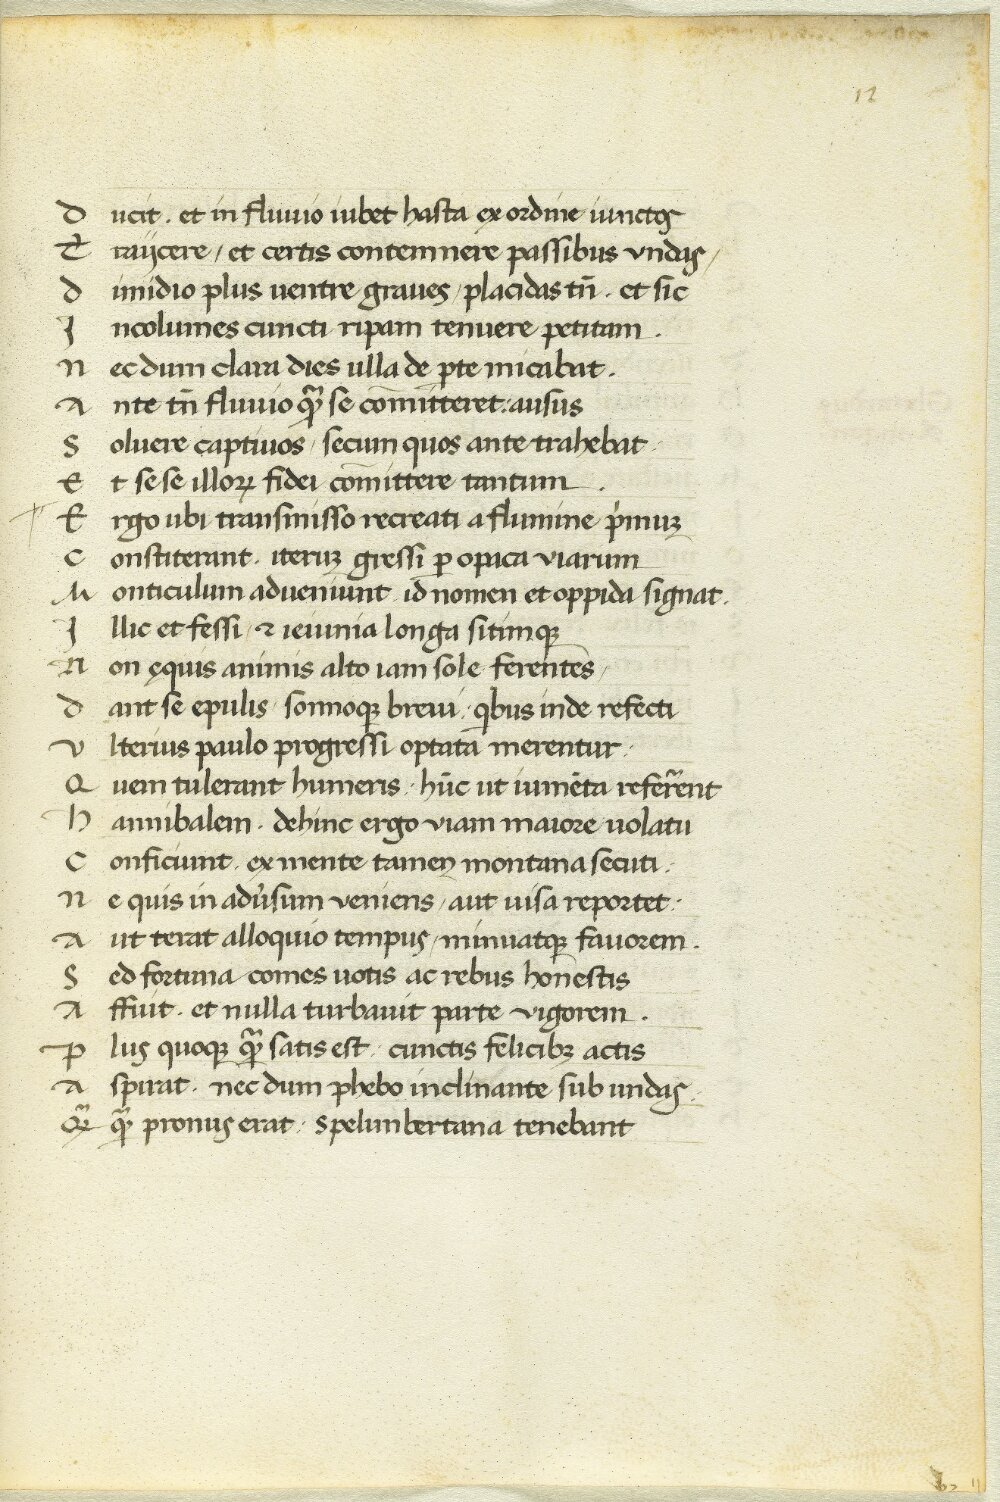 12
Ducit . et in fluuio iubet hasta ex ordine iunctos
Traijcere / et certis contemnere passibus vndas /
dimidio plus uentre graues / placidas tñ . et sic
Jncolumes cuncti ripam tenuere petitam .
nec dum clara dies ulla de ꝑte micabat .
Ante tñ fluuio qꝫ̃ se com̄itteret : ausus
Soluere captiuos / secum quos ante trahebat .
Et sese illoꝝ fidei com̄ittere tantum .
Ergo ubi transmisso recreati a flumine p̓muꝫ
Constiterant . iteruꝫ gressi ꝑ opaca viarum
Monticulum adueniunt . id nomen et oppida signat .
Jllic et fessi / ⁊ ieiunia longa sitimqꝫ
Non ęquis animis alto iam sole ferentes /
Dant se epulis / somnoqꝫ breui . qͥbus inde refecti
Vlterius paulo progressi optata merentur .
Quem tulerant humeris . hūc ut iumēta referr̃ent
Hannibalem . dehinc ergo viam maiore uolatu
Conficiunt . ex mente tamen montana secuti .
Ne quis in adu̓sum veniens / aut uisa reportet .
Aut terat alloquio tempus / minuatqꝫ fauorem .
Sed fortuna comes uotis ac rebus honestis
Affuit . et nulla turbauit parte vigorem .
Plus quoqꝫ qꝫ̃ satis est . cunctis felicibꝫ actis
Aspirat . nec dum phebo inclinante sub undas .
Qꝫ̃ qꝫ̃ pronus erat . Spelimbertana tenebant